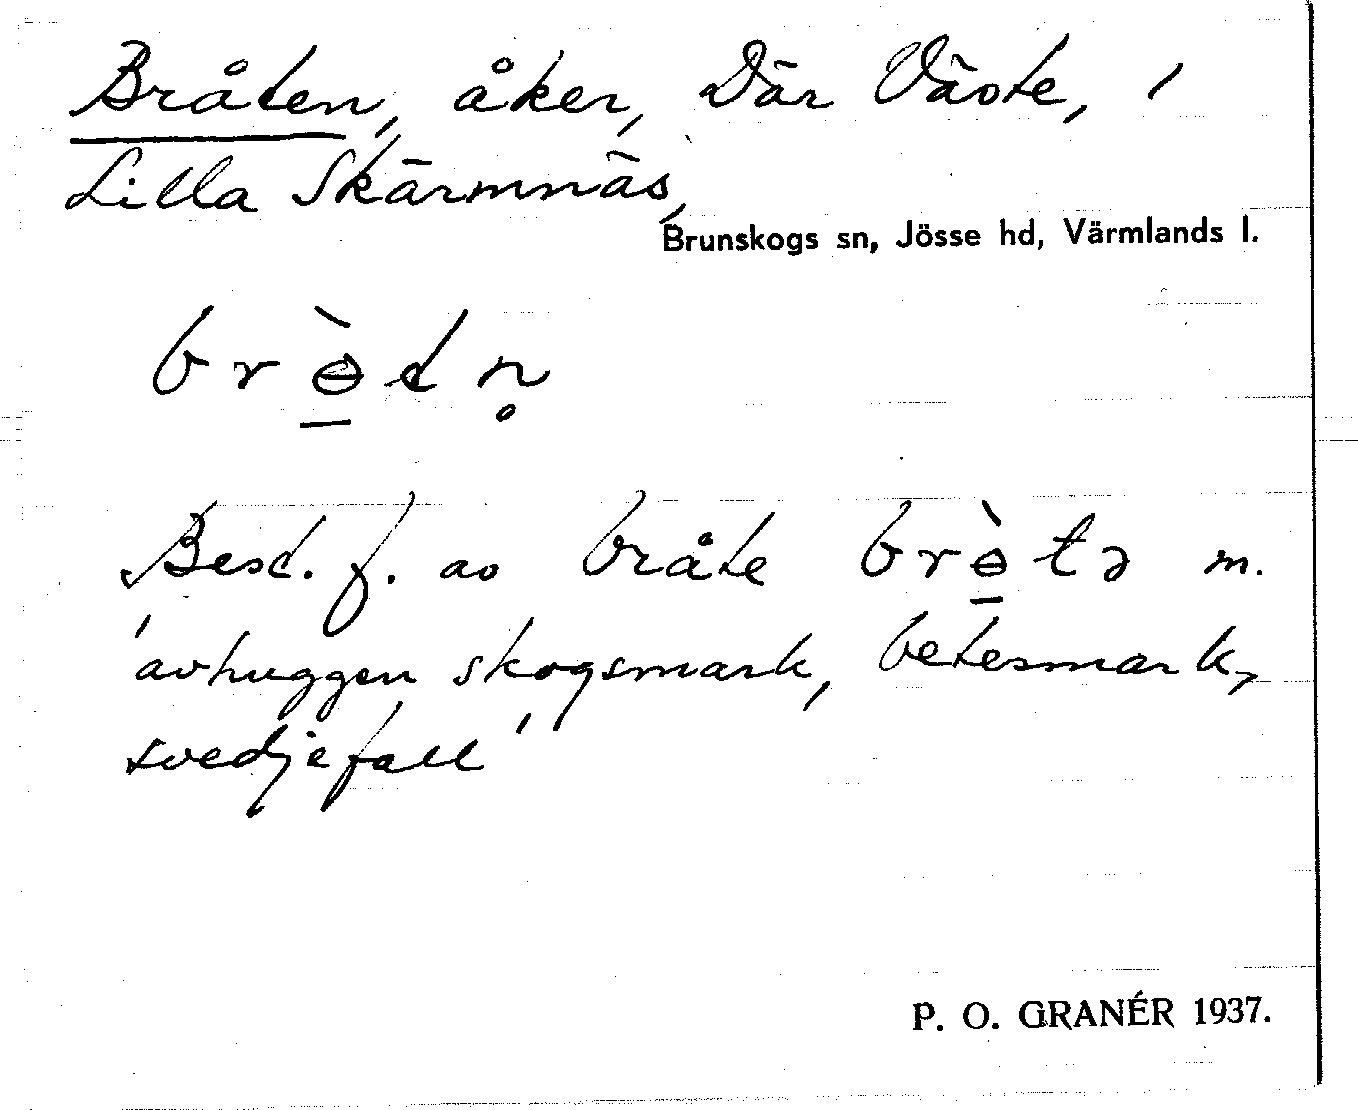 Bråten, åker, Där Väste, 1
Lilla Skärmnäs,
Brunskogs sn, Jösse hd, Värmlands l.
brɵ̠̀tn̥
Best. f. av bråte brɵ̠̀tə m.
'avhuggen skogsmark, betesmark,
svedjefall'
P. O. GRANÉR 1937.